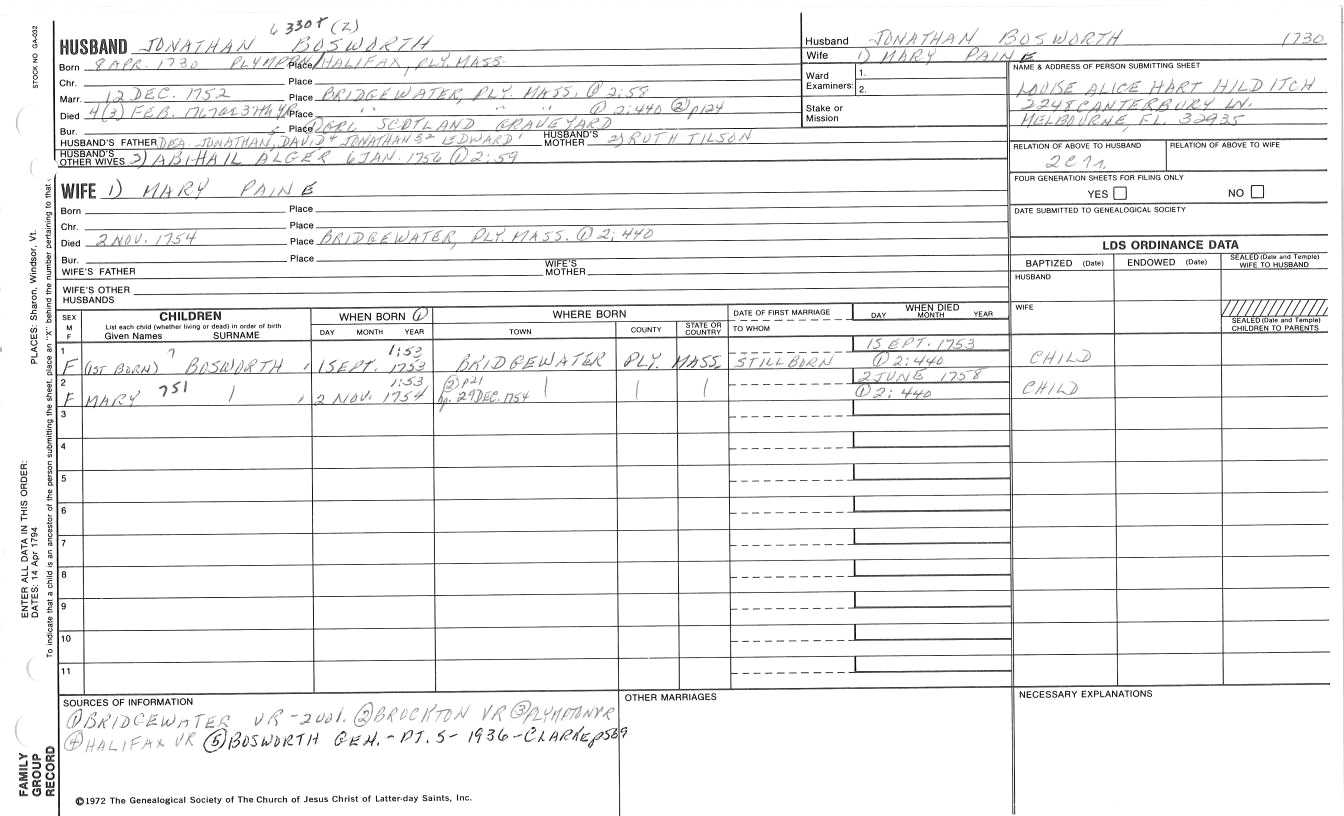 6330 (2)
HUSBAND JONATHAN BOSWORTH
Born 8 APR. 1730 Place PLYMPTON/HALIFAX, PLY. MASS.
Chr. Place
Marr. 12 DEC. 1752 Place BRIDGEWATER, PLY. MASS. ① 2:58
Died 4(3) FEB. Place " " " ① 2:440 ② p124
Bur. Place SCOTLAND GRAVEYARD
HUSBAND'S FATHER DEA. JONATHAN, DAVID⁴ JONATHAN³² EDWARD¹ HUSBAND'S MOTHER 2) RUTH TILSON
HUSBAND'S OTHER WIVES 2) ABIHAIL ALGER 6 JAN. 1756 ① 2:59
WIFE 1) MARY PAINE
Born Place
Chr. Place
Died 2 NOV. 1754 Place BRIDGEWATER, PLY. MASS. ① 2:440
Bur. Place
WIFE'S FATHER WIFE'S MOTHER
WIFE'S OTHER HUSBANDS
Husband JONATHAN BOSWORTH 1730
Wife 1) MARY PAINE
Ward Examiners: 1.
2.
Stake or Mission
NAME & ADDRESS OF PERSON SUBMITTING SHEET
LOUISE ALICE HART HILDITCH
2248 CANTERBURY LN.
MELBOURNE, FL. 32935
RELATION OF ABOVE TO HUSBAND RELATION OF ABOVE TO WIFE
2C7r.
FOUR GENERATION SHEETS FOR FILING ONLY
YES NO
DATE SUBMITTED TO GENEALOGICAL SOCIETY
LDS ORDINANCE DATA
BAPTIZED (Date) ENDOWED (Date) SEALED (Date and Temple) WIFE TO HUSBAND
HUSBAND
WIFE
SEALED (Date and Temple) CHILDREN TO PARENTS
SEX M F
CHILDREN
List each child (whether living or dead) in order of birth
Given Names SURNAME
WHEN BORN ①
DAY MONTH YEAR
WHERE BORN
TOWN COUNTY STATE OR COUNTRY
DATE OF FIRST MARRIAGE
TO WHOM
WHEN DIED
DAY MONTH YEAR
1 1:53 15 SEPT. 1753
F (1ST BORN) BOSWORTH 1 SEPT. 1753 BRIDGEWATER PLY. MASS. STILLBORN ① 2:440 CHILD
2 751 1:53 ② p21 2 JUNE 1758
F MARY 2 NOV. 1754 bp. 29 DEC. 1754 ① 2:440 CHILD
3
4
5
6
7
8
9
10
11
SOURCES OF INFORMATION
① BRIDGEWATER VR-2vol. ② BROCKTON VR ③ PLYMPTON VR
④ HALIFAX VR ⑤ BOSWORTH GEN.-PT. 5-1936-CLARKE p589
OTHER MARRIAGES
NECESSARY EXPLANATIONS
©1972 The Genealogical Society of The Church of Jesus Christ of Latter-day Saints, Inc.
STOCK NO GA-032
PLACES: Sharon, Windsor, Vt.
ENTER ALL DATA IN THIS ORDER:
DATES: 14 Apr 1794
To indicate that a child is an ancestor of the person submitting the sheet, place an "X" behind the number pertaining to that
FAMILY GROUP RECORD